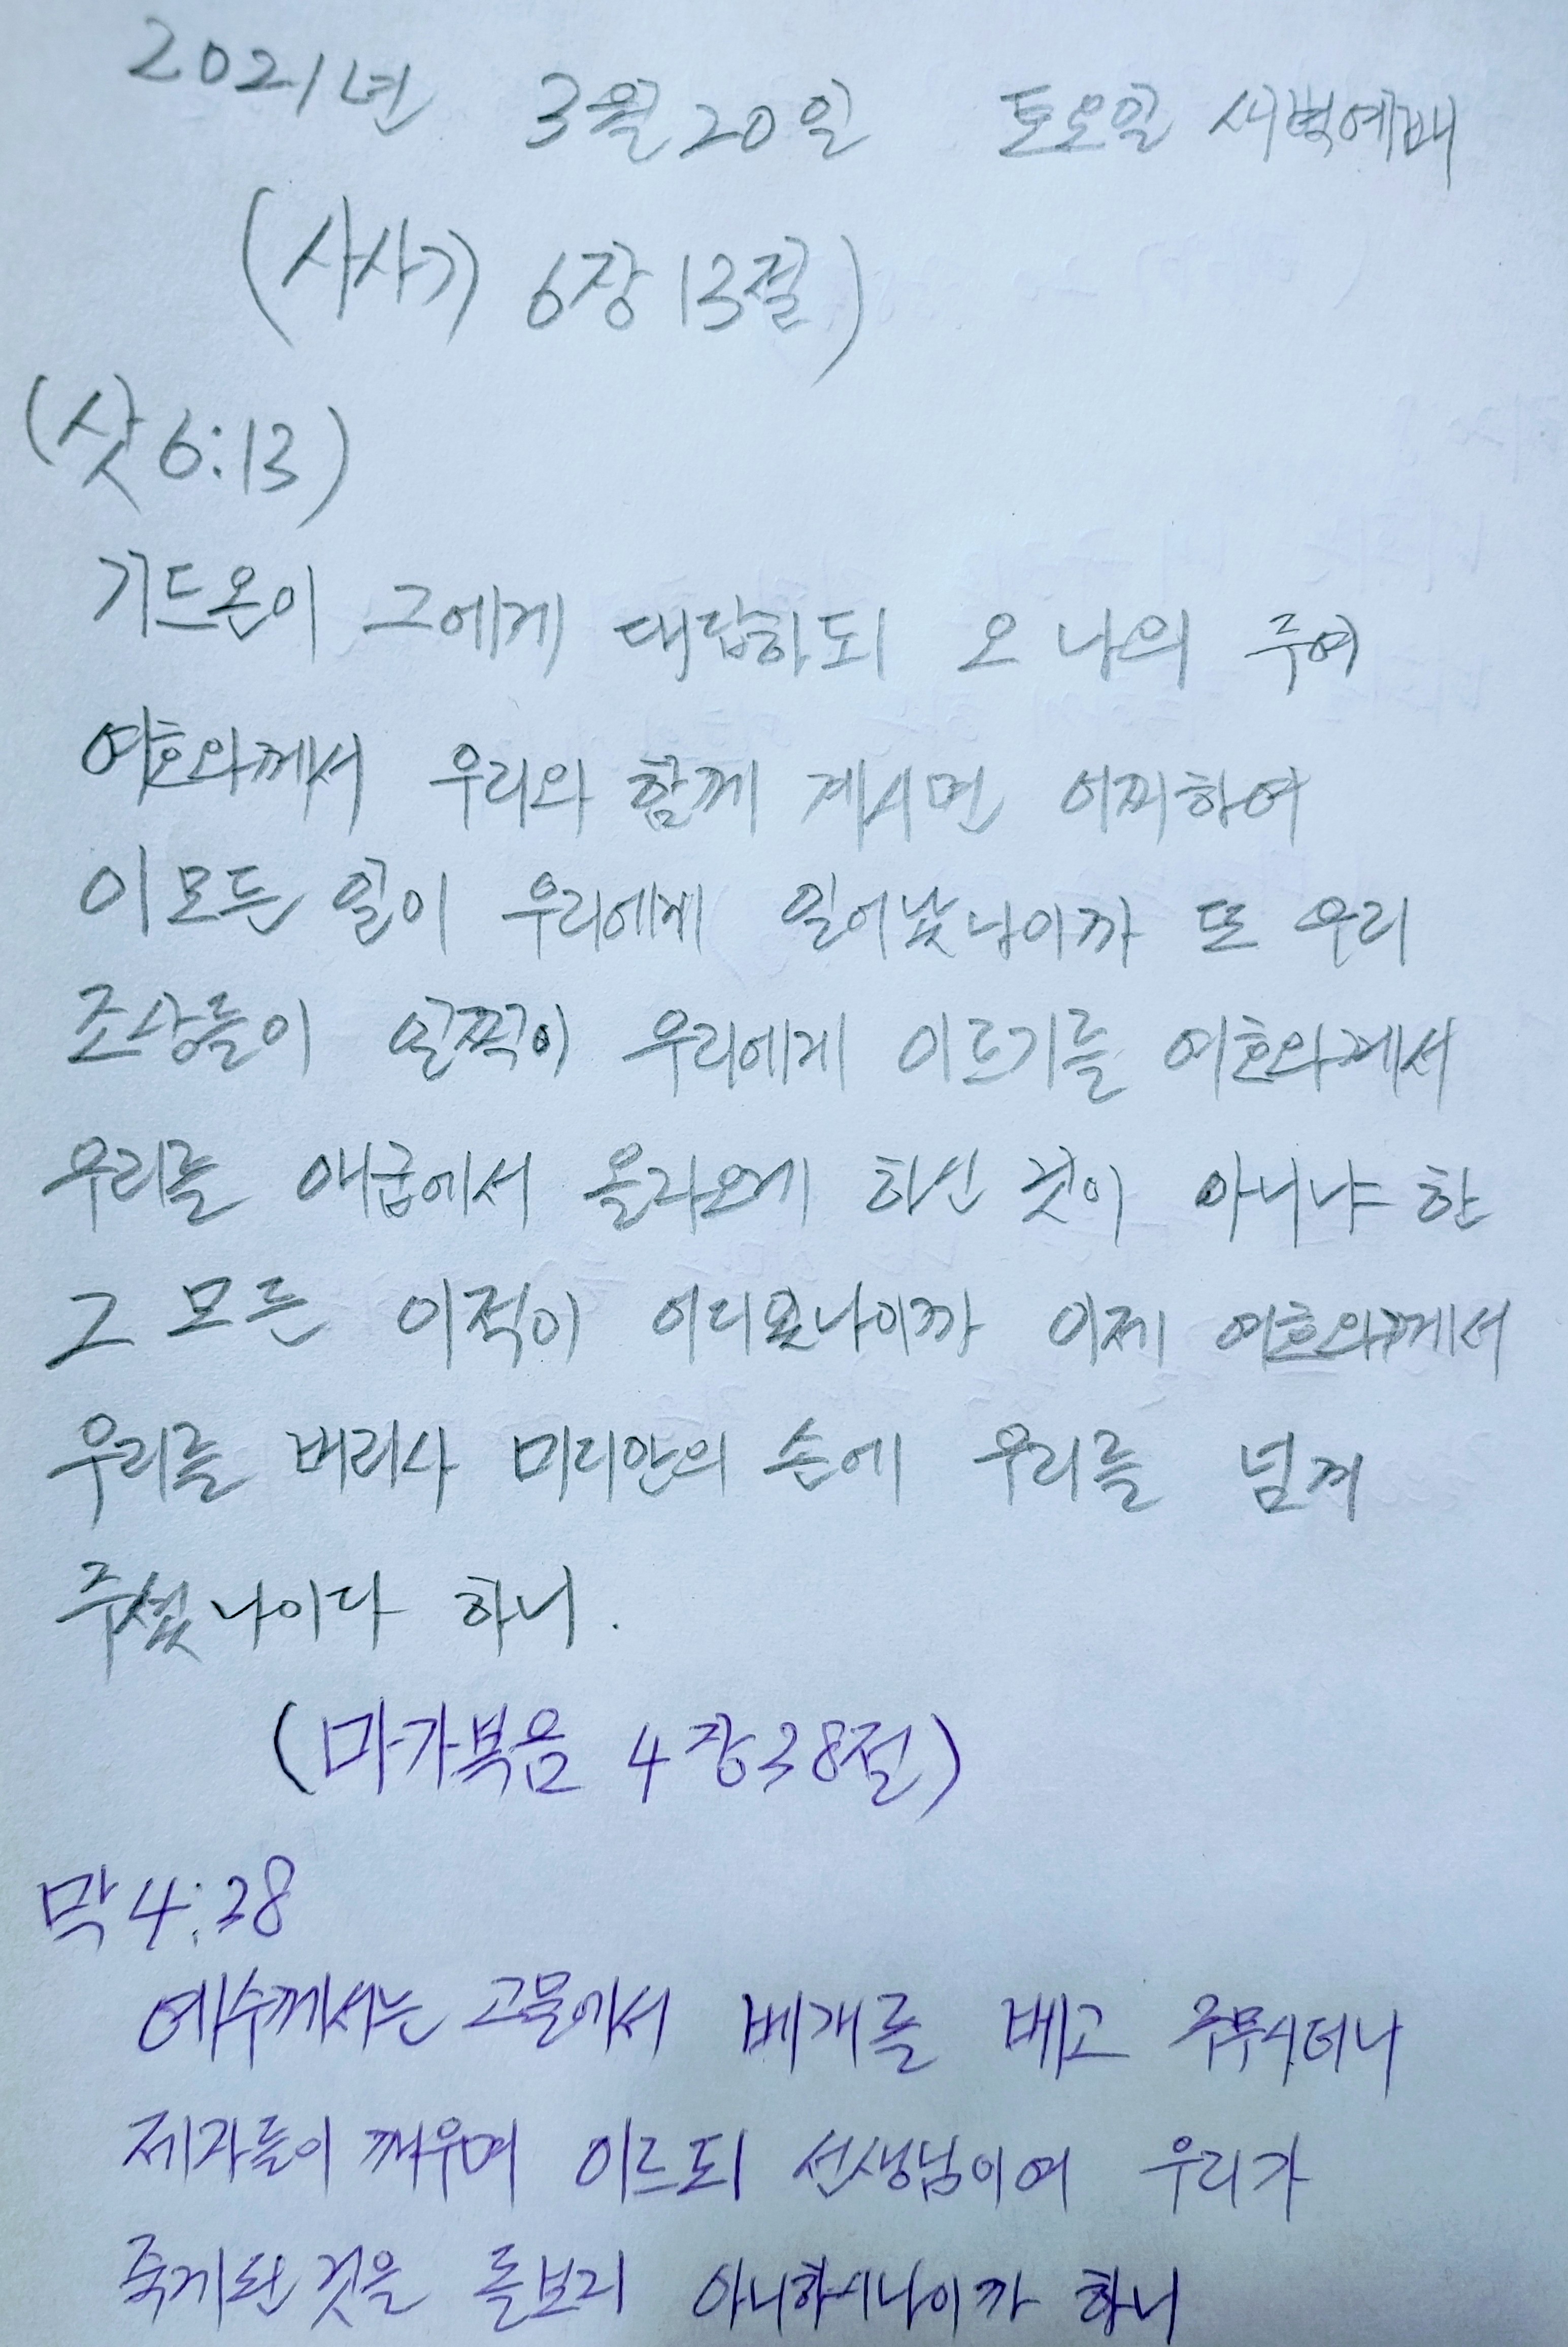 2021년 3월 20일 토요일 새벽예배
(사사기 6장 13절)
(삿 6:13)
기드온이 그에게 대답하되 오 나의 주여
여호와께서 우리와 함께 계시면 어찌하여
이 모든 일이 우리에게 일어났나이까 또 우리
조상들이 일찍이 우리에게 이르기를 여호와께서
우리를 애굽에서 올라오게 하신 것이 아니냐 한
그 모든 이적이 어디있나이까 이제 여호와께서
우리를 버리사 미디안의 손에 우리를 넘겨
주셨나이다 하니.
(마가복음 4장38절)
막4:38
예수께서는 고물에서 베개를 베고 주무시더니
제자들이 깨우며 이르되 선생님이여 우리가
죽게된 것을 돌보지 아니하시나이까 하니